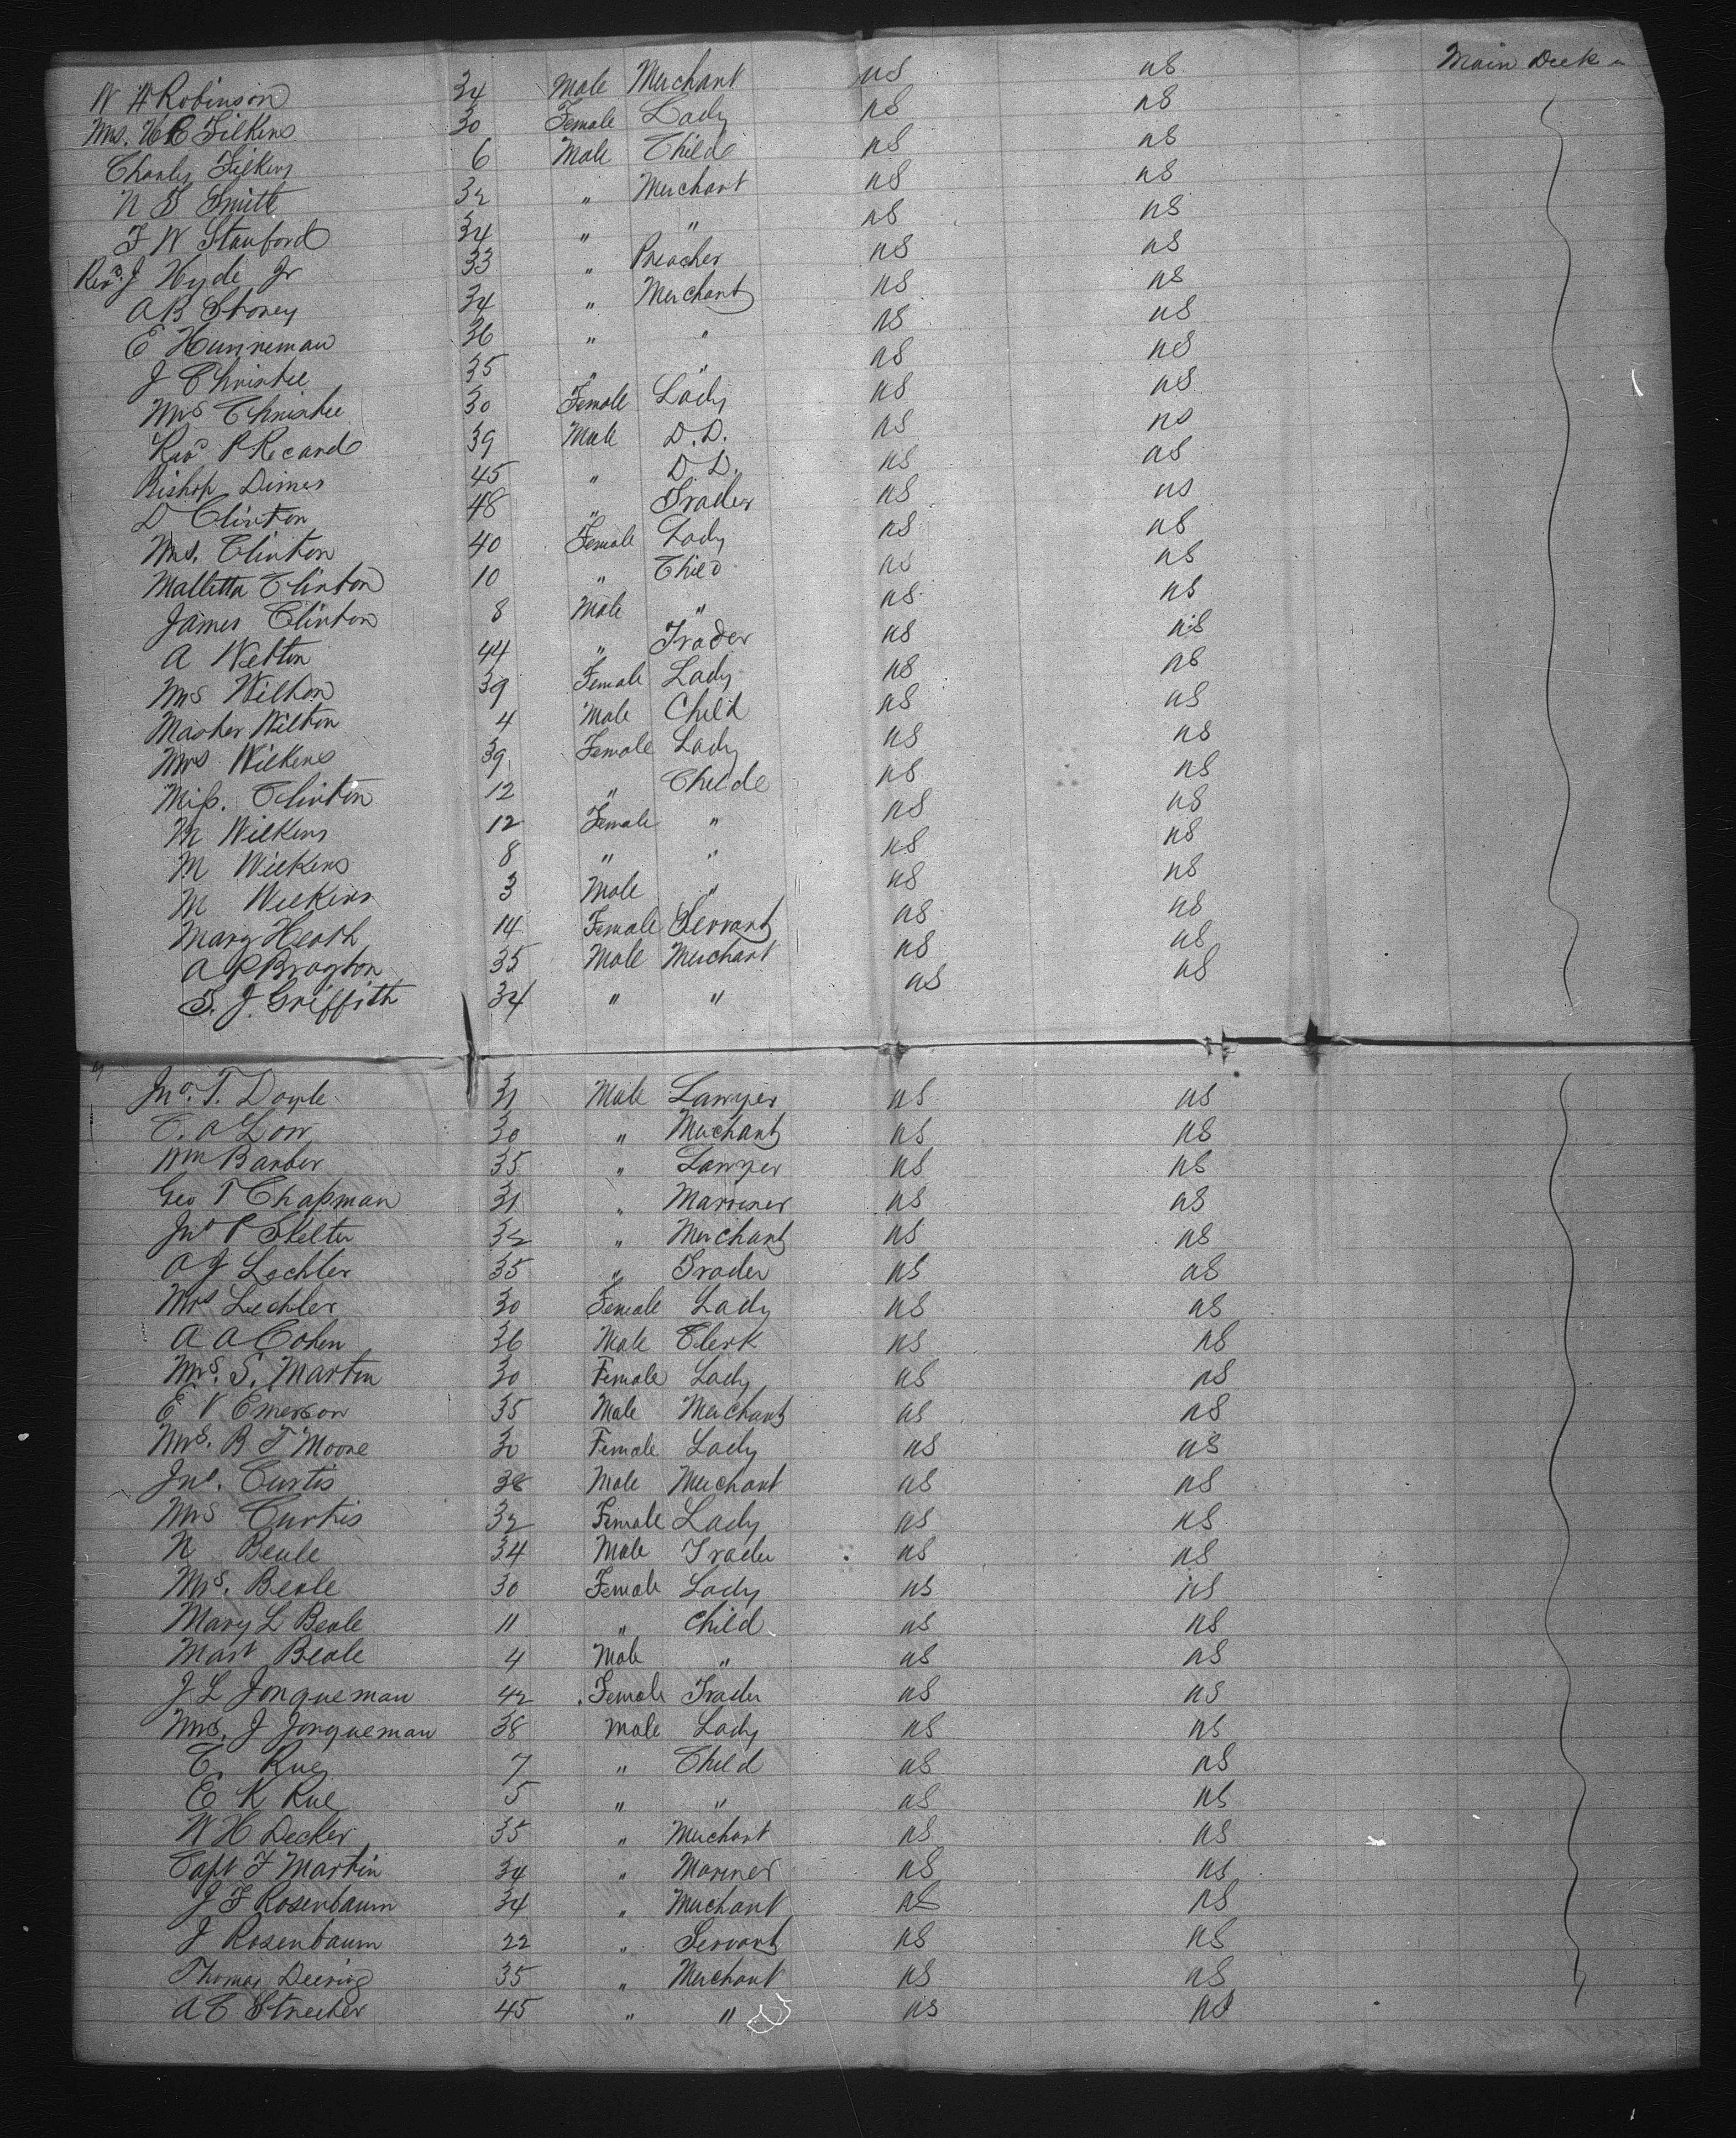 Main Deck
W H Robinson 34 Male Merchant US US
Mrs. H C Filkins 30 Female Lady US US
Charles Filkins 6 Male Child US US
N T Smith 32 " Merchant US US
F W Stanford 34 " " US US
Revd. J Hyde Jr 33 " Preacher US US
A B Storey 34 " Merchant US US
E Hunneman 36 " " US US
J Christie 35 " " US US
Mrs Christie 30 Female Lady US US
Revd P Recard 39 Male D.D. US US
Bishop Dimes 45 " D.D. US US
D Clinton 48 " Trader US US
Mrs. Clinton 40 Female Lady US US
Malletta Clinton 10 " Child US US
James Clinton 8 Male " US US
A Welton 44 " Trader US US
Mrs Wilton 39 Female Lady US US
Master Wilton 4 Male Child US US
Mrs Wilkins 39 Female Lady US US
Miss. Clinton 12 " Child US US
M Wilkins 12 Female " US US
M Wilkins 8 " " US US
M Wilkins 3 Male " US US
Mary Heath 14 Female Servant US US
A P Brayton 35 Male Merchant US US
T. J. Griffith 34 " " US US
Jno. T. Doyle 31 Male Lawyer US US
C. A Low 30 " Merchant US US
Wm Barber 35 " Lawyer US US
Geo T Chapman 31 " Marriner US US
Jno P Skelter 32 " Merchant US US
A J Lechler 35 " Trader US US
Mrs Lechler 30 Female Lady US US
A A Cohen 36 Male Clerk US US
Mrs. S. Martin 30 Female Lady US US
E V Emerson 35 Male Merchant US US
Mrs. B T Moore 30 Female Lady US US
Jno. Curtis 38 Male Merchant US US
Mrs Curtis 32 Female Lady US US
N Beale 34 Male Trader US US
Mrs. Beale 30 Female Lady US US
Mary L Beale 11 " Child US US
Mast Beale 4 Male " US US
J L Jonqueman 42 Female Trader US US
Mrs. J Jonqueman 38 Male Lady US US
C. Rue 7 " Child US US
E K Rue 5 " " US US
W H Decker 35 " Merchant US US
Capt F Martin 34 " Mariner US US
J F Rosenbaum 34 " Merchant US US
J Rosenbaum 22 " Servant US US
Thomas Deering 35 " Merchant US US
A E Strecker 45 " " US US